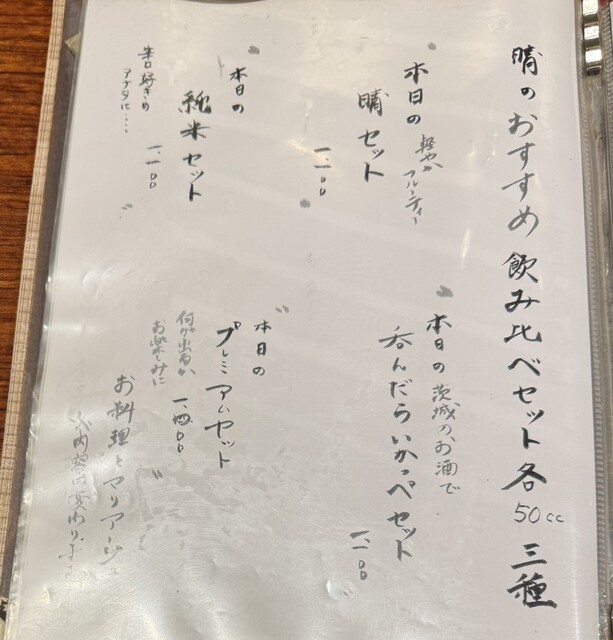 晴のおすすめ 飲み比べセット各50cc 三種
本日の
軽やか
フルーティー
晴セット
一、一〇〇
本日の
純米セット
辛口好きの
アナタに‥‥
一、一〇〇
本日の茨城のお酒で
呑んだらいかっぺセット
一、一〇〇
本日の
プレミアムセット
何が出るか
お楽しみに
一、四〇〇
お料理とマリアージュ